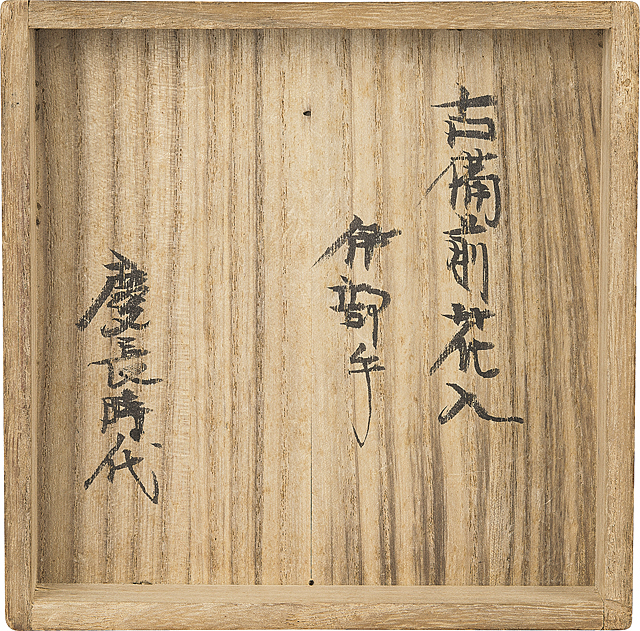 古備前花入
伊部手
慶長時代